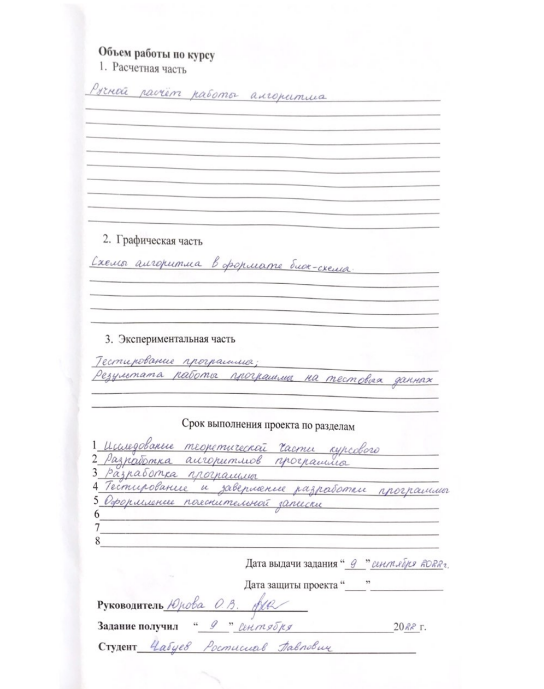 Объем работы по курсу
1. Расчетная часть
Ручной расчёт работы алгоритма
2. Графическая часть
Схемы алгоритма в формате блок-схема.
3. Экспериментальная часть
Тестирование программы;
Результата работы программы на тестовых данных
Срок выполнения проекта по разделам
1 Исследование теоретической части курсового
2 Разработка алгоритмов программы
3 Разработка программы
4 Тестирование и завершение разработки программы
5 Оформление пояснительной записки
6
7
8
Дата выдачи задания “ 9 ” сентября 2022г.
Дата защиты проекта “ ”
Руководитель Юрова О.В.
Задание получил “ 9 ” сентября 2022 г.
Студент Павлович